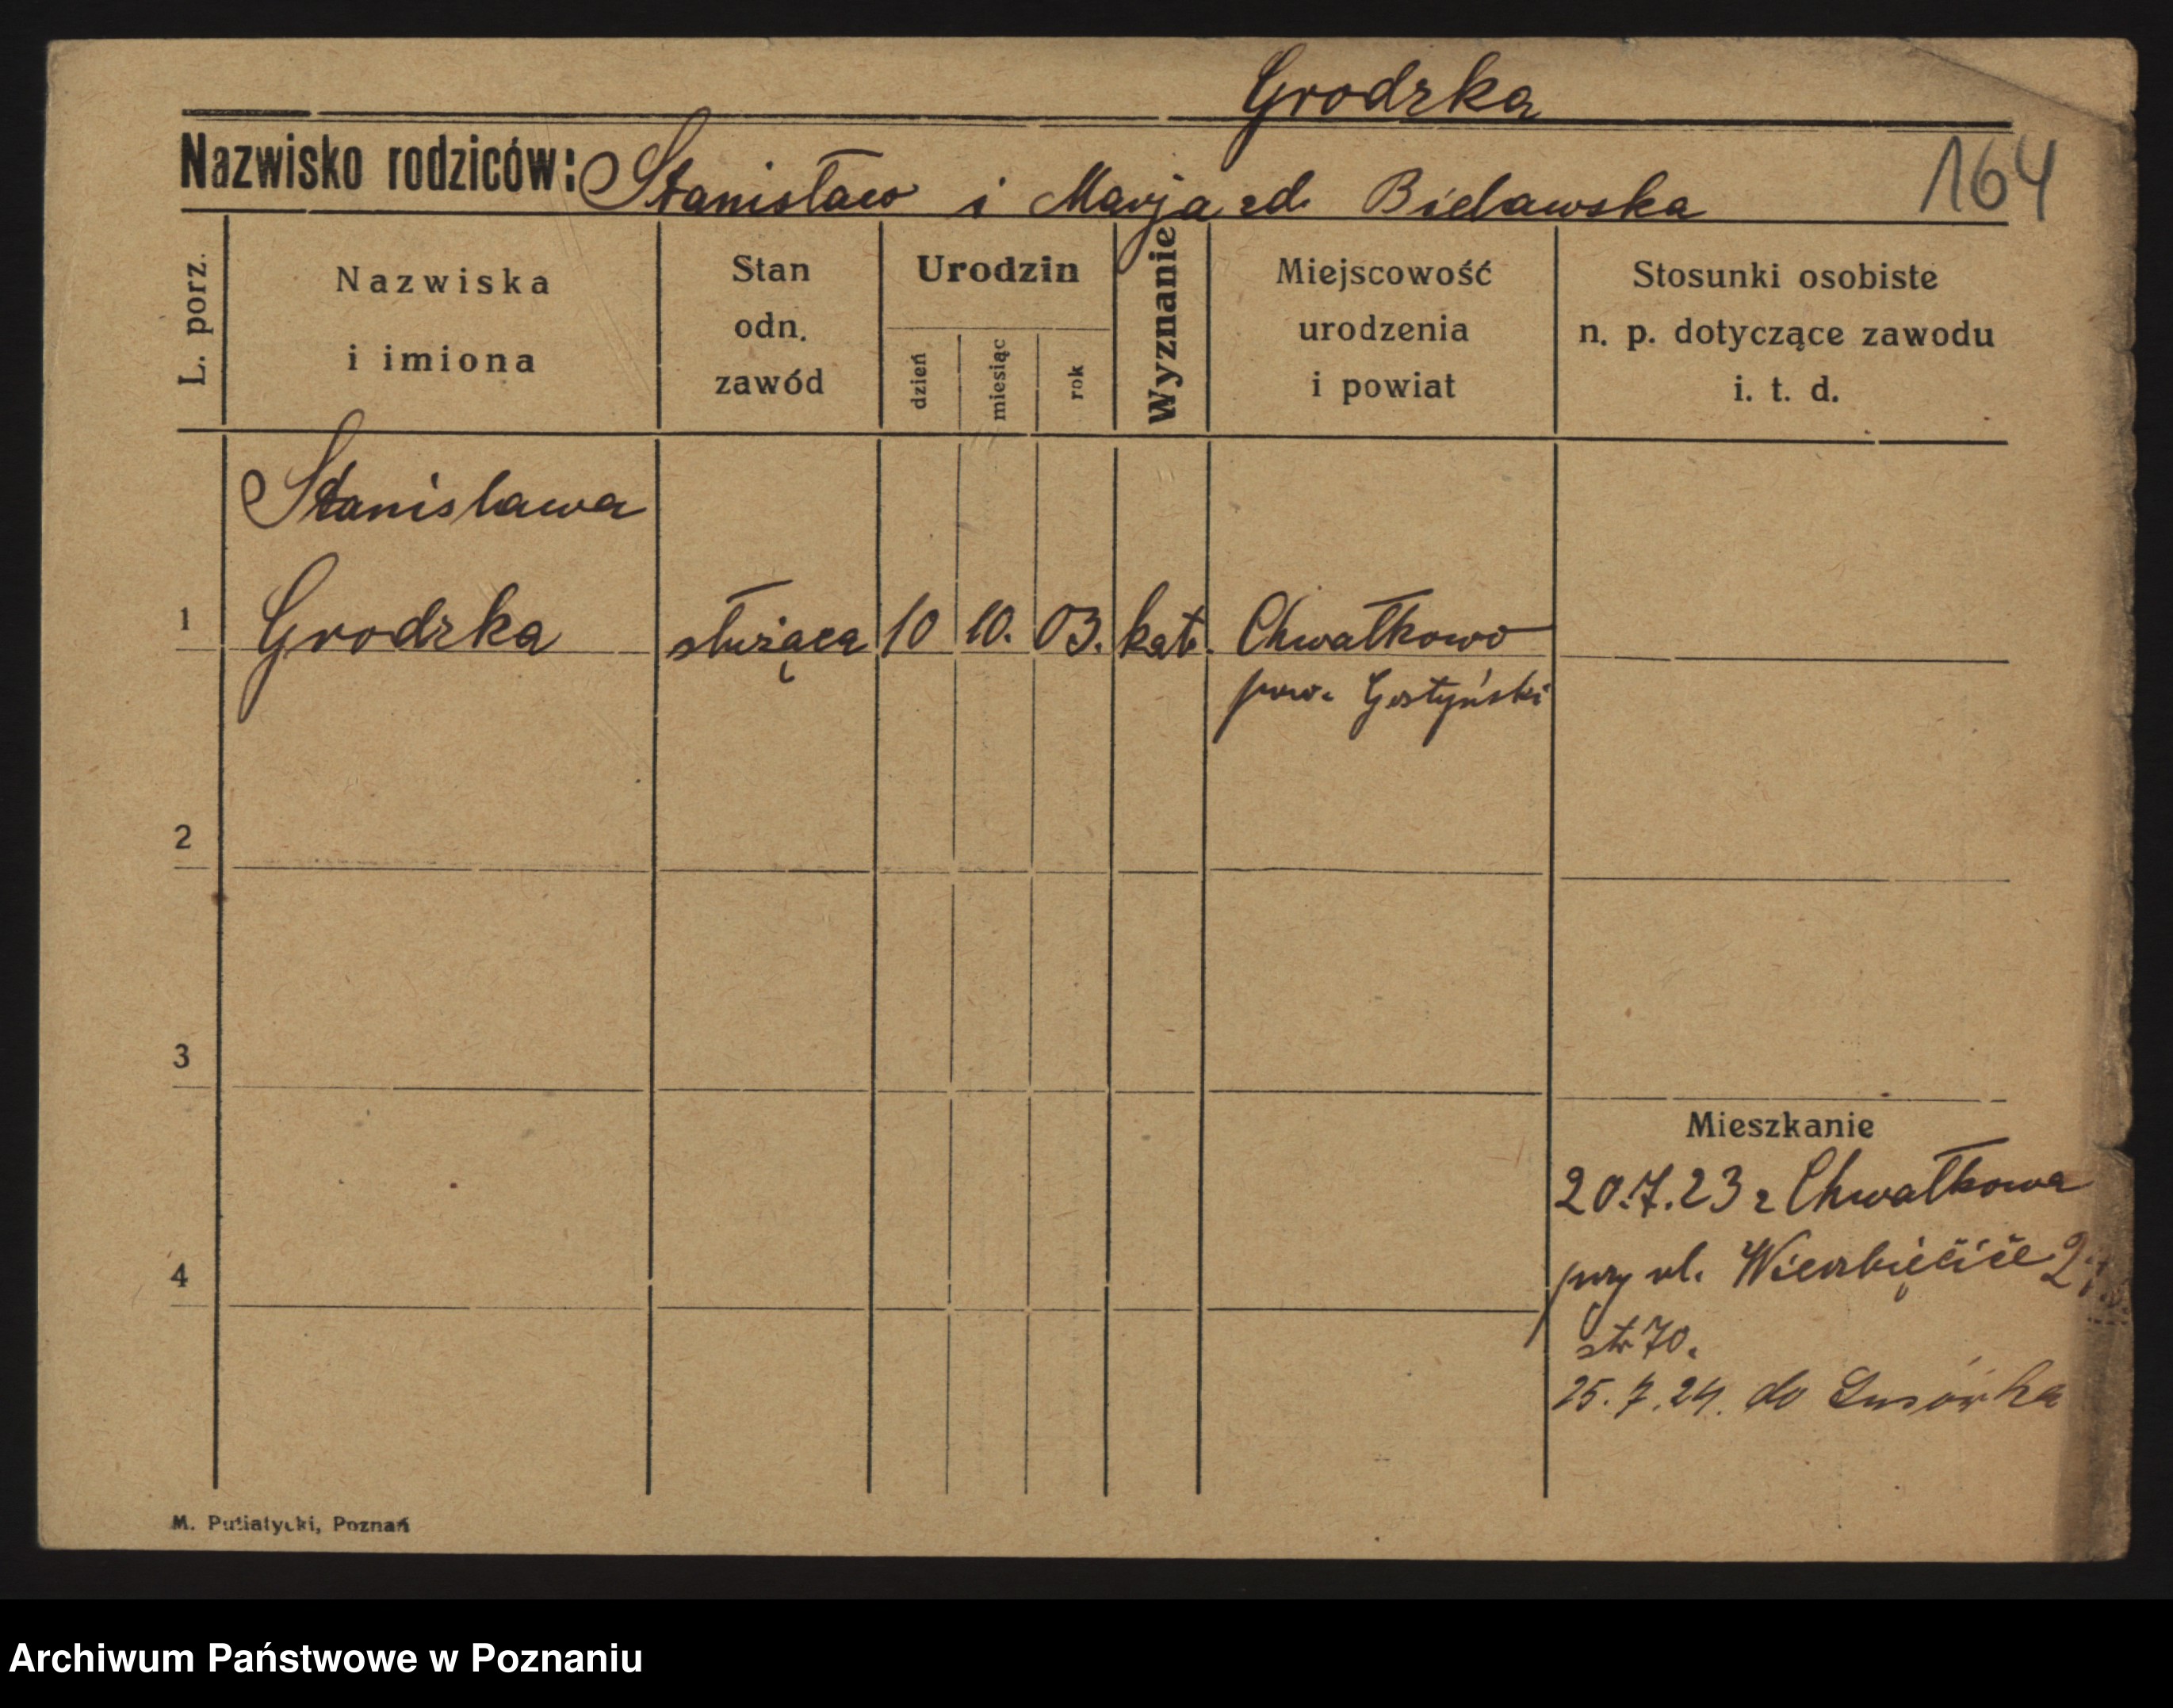 Grodzka
Nazwisko rodziców: Stanisław i Marja zd. Bielawska
164
L. porz.
Nazwiska
i imiona
Stan
odn.
zawód
Urodzin
dzień
miesiąc
rok
Wyznanie
Miejscowość
urodzenia
i powiat
Stosunki osobiste
n. p. dotyczące zawodu
i. t. d.
Stanislawa
1 Grodzka służąca 10 10. 03. kat. Chwałkowo
pow. Gostyński
2
3
Mieszkanie
20.7.23 z Chwałkowa
przy ul. Wierzbięcice
4
str 70.
25.7.24. do Lusówka
M. Putiatycki, Poznań
Archiwum Państwowe w Poznaniu